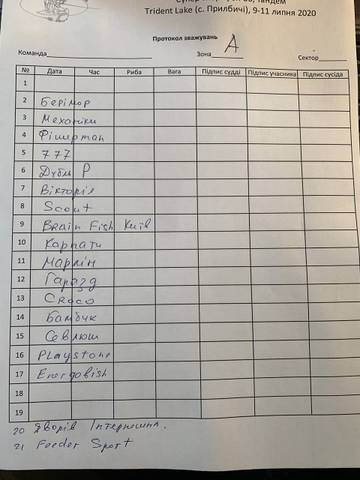 Trident Lake (с. Прилбичі), 9-11 липня 2020
Протокол зважувань
Команда Зона А Сектор
№ Дата Час Риба Вага Підпис судді Підпис учасника Підпис сусіда
1
2 Берімор
3 Механіки
4 Фішерман
5 777
6 Дубль Р
7 Вікторія
8 Scout
9 Brain Fish Київ
10 Карпати
11 Марлін
12 Гаразд
13 Croco
14 Бамбук
15 Севлюш
16 Playstone
17 Energofish
18
19
20 Яворів Інтернешнл.
21 Feeder Sport